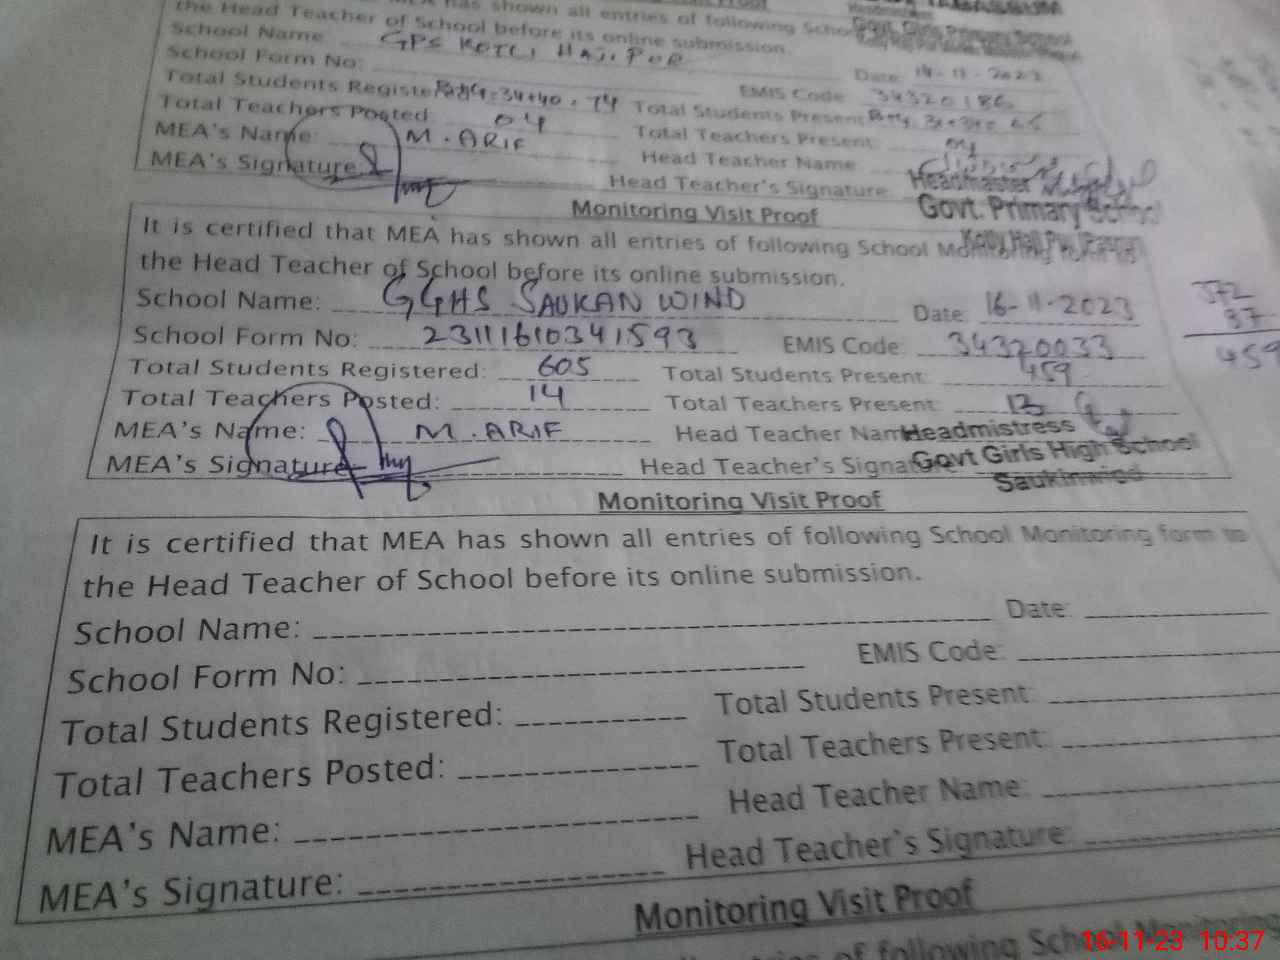 MEA has shown all entries of following School
the Head Teacher of School before its online submission.
Govt. Girls Primary School
School Name GPS KOTLI HAJI PUR
School Form No: Date: 14-11-2023
Total Students Registered 34+40=74 EMIS Code: 34320186
Total Teachers Posted 04 Total Students Present
MEA's Name: M. ARIF Total Teachers Present: 04
MEA's Signature: Head Teacher Name
Head Teacher's Signature Headmaster
Govt. Primary School
Monitoring Visit Proof
It is certified that MEA has shown all entries of following School Monitoring form to
the Head Teacher of School before its online submission.
School Name: GGHS SAUKAN WIND Date: 16-11-2023
School Form No: 23111610341593 EMIS Code: 34320033
Total Students Registered: 605 Total Students Present: 459
Total Teachers Posted: 14 Total Teachers Present: 13
MEA's Name: M. ARIF Head Teacher Name Headmistress
MEA's Signature Head Teacher's Signature Govt Girls High School
Saukinwind
372
87
459
Monitoring Visit Proof
It is certified that MEA has shown all entries of following School Monitoring form to
the Head Teacher of School before its online submission.
School Name: Date:
School Form No: EMIS Code:
Total Students Registered: Total Students Present:
Total Teachers Posted: Total Teachers Present:
MEA's Name: Head Teacher Name:
MEA's Signature: Head Teacher's Signature:
Monitoring Visit Proof
entries of following School Monitoring
16-11-23 10:37